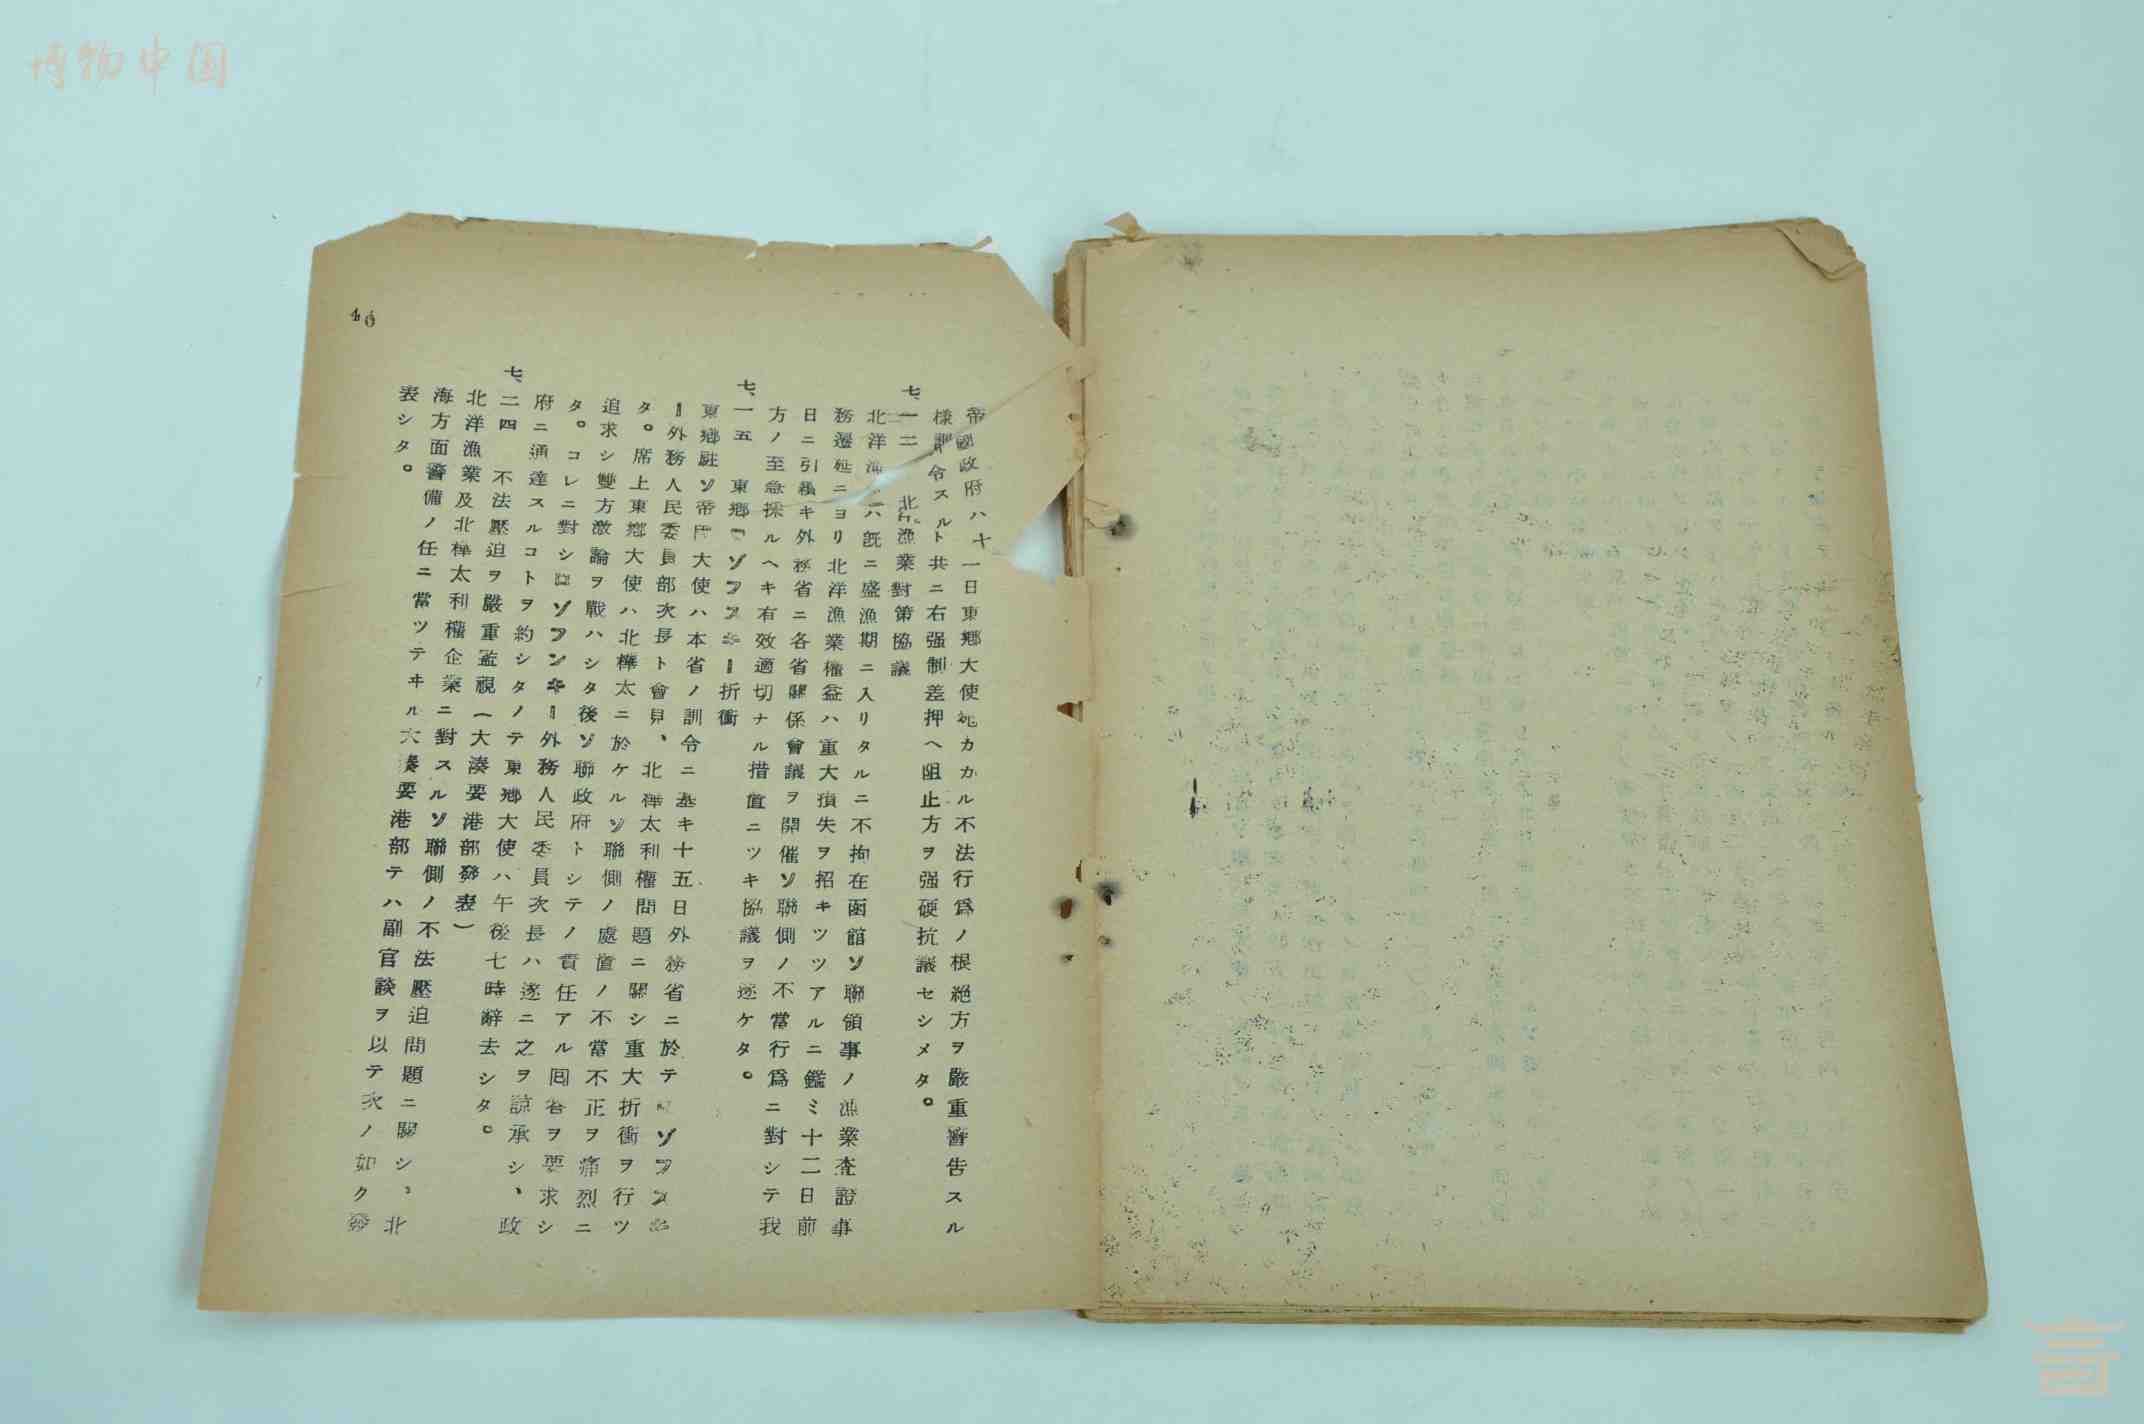 博物中国
46
帝國政府ハ十一日東郷大使宛カカル不法行爲ノ根絶方ヲ嚴重警告スル
様訓令スルト共ニ右强制差押ヘ阻止方ヲ强硬抗議セシメタ。
七、一二 北洋漁業對策協議
北洋漁ハ既ニ盛漁期ニ入リタルニ不拘在函館ソ聯領事ノ漁業査證事
務遷延ニヨリ北洋漁業權益ハ重大損失ヲ招キツツアルニ鑑ミ十二日前
日ニ引續キ外務省ニ各省關係會議ヲ開催ソ聯側ノ不當行爲ニ對シテ我
方ノ至急採ルヘキ有效適切ナル措置ニツキ協議ヲ遂ケタ。
七、一五 東郷ー折衝
東郷駐ソ帝國大使ハ本省ノ訓令ニ基キ十五日外務省ニ於テ
ー外務人民委員部次長ト會見、北樺太利權問題ニ關シ重大折衝ヲ行ツ
タ。席上東郷大使ハ北樺太ニ於ケルソ聯側ノ處置ノ不當不正ヲ痛烈ニ
追求シ雙方激論ヲ戰ハシタ後ソ聯政府トシテノ責任アル囘答ヲ要求シ
タ。コレニ對シー外務人民委員次長ハ遂ニ之ヲ諒承シ、政
府ニ通達スルコトヲ約シタノテ東郷大使ハ午後七時辭去シタ。
七、二四 不法壓迫ヲ嚴重監視(大湊要港部發表)
北洋漁業及北樺太利權企業ニ對スルソ聯側ノ不法壓迫問題ニ關シ、北
海方面警備ノ任ニ當ツテヰル大湊要港部テハ副官談ヲ以テ次ノ如ク發
表シタ。